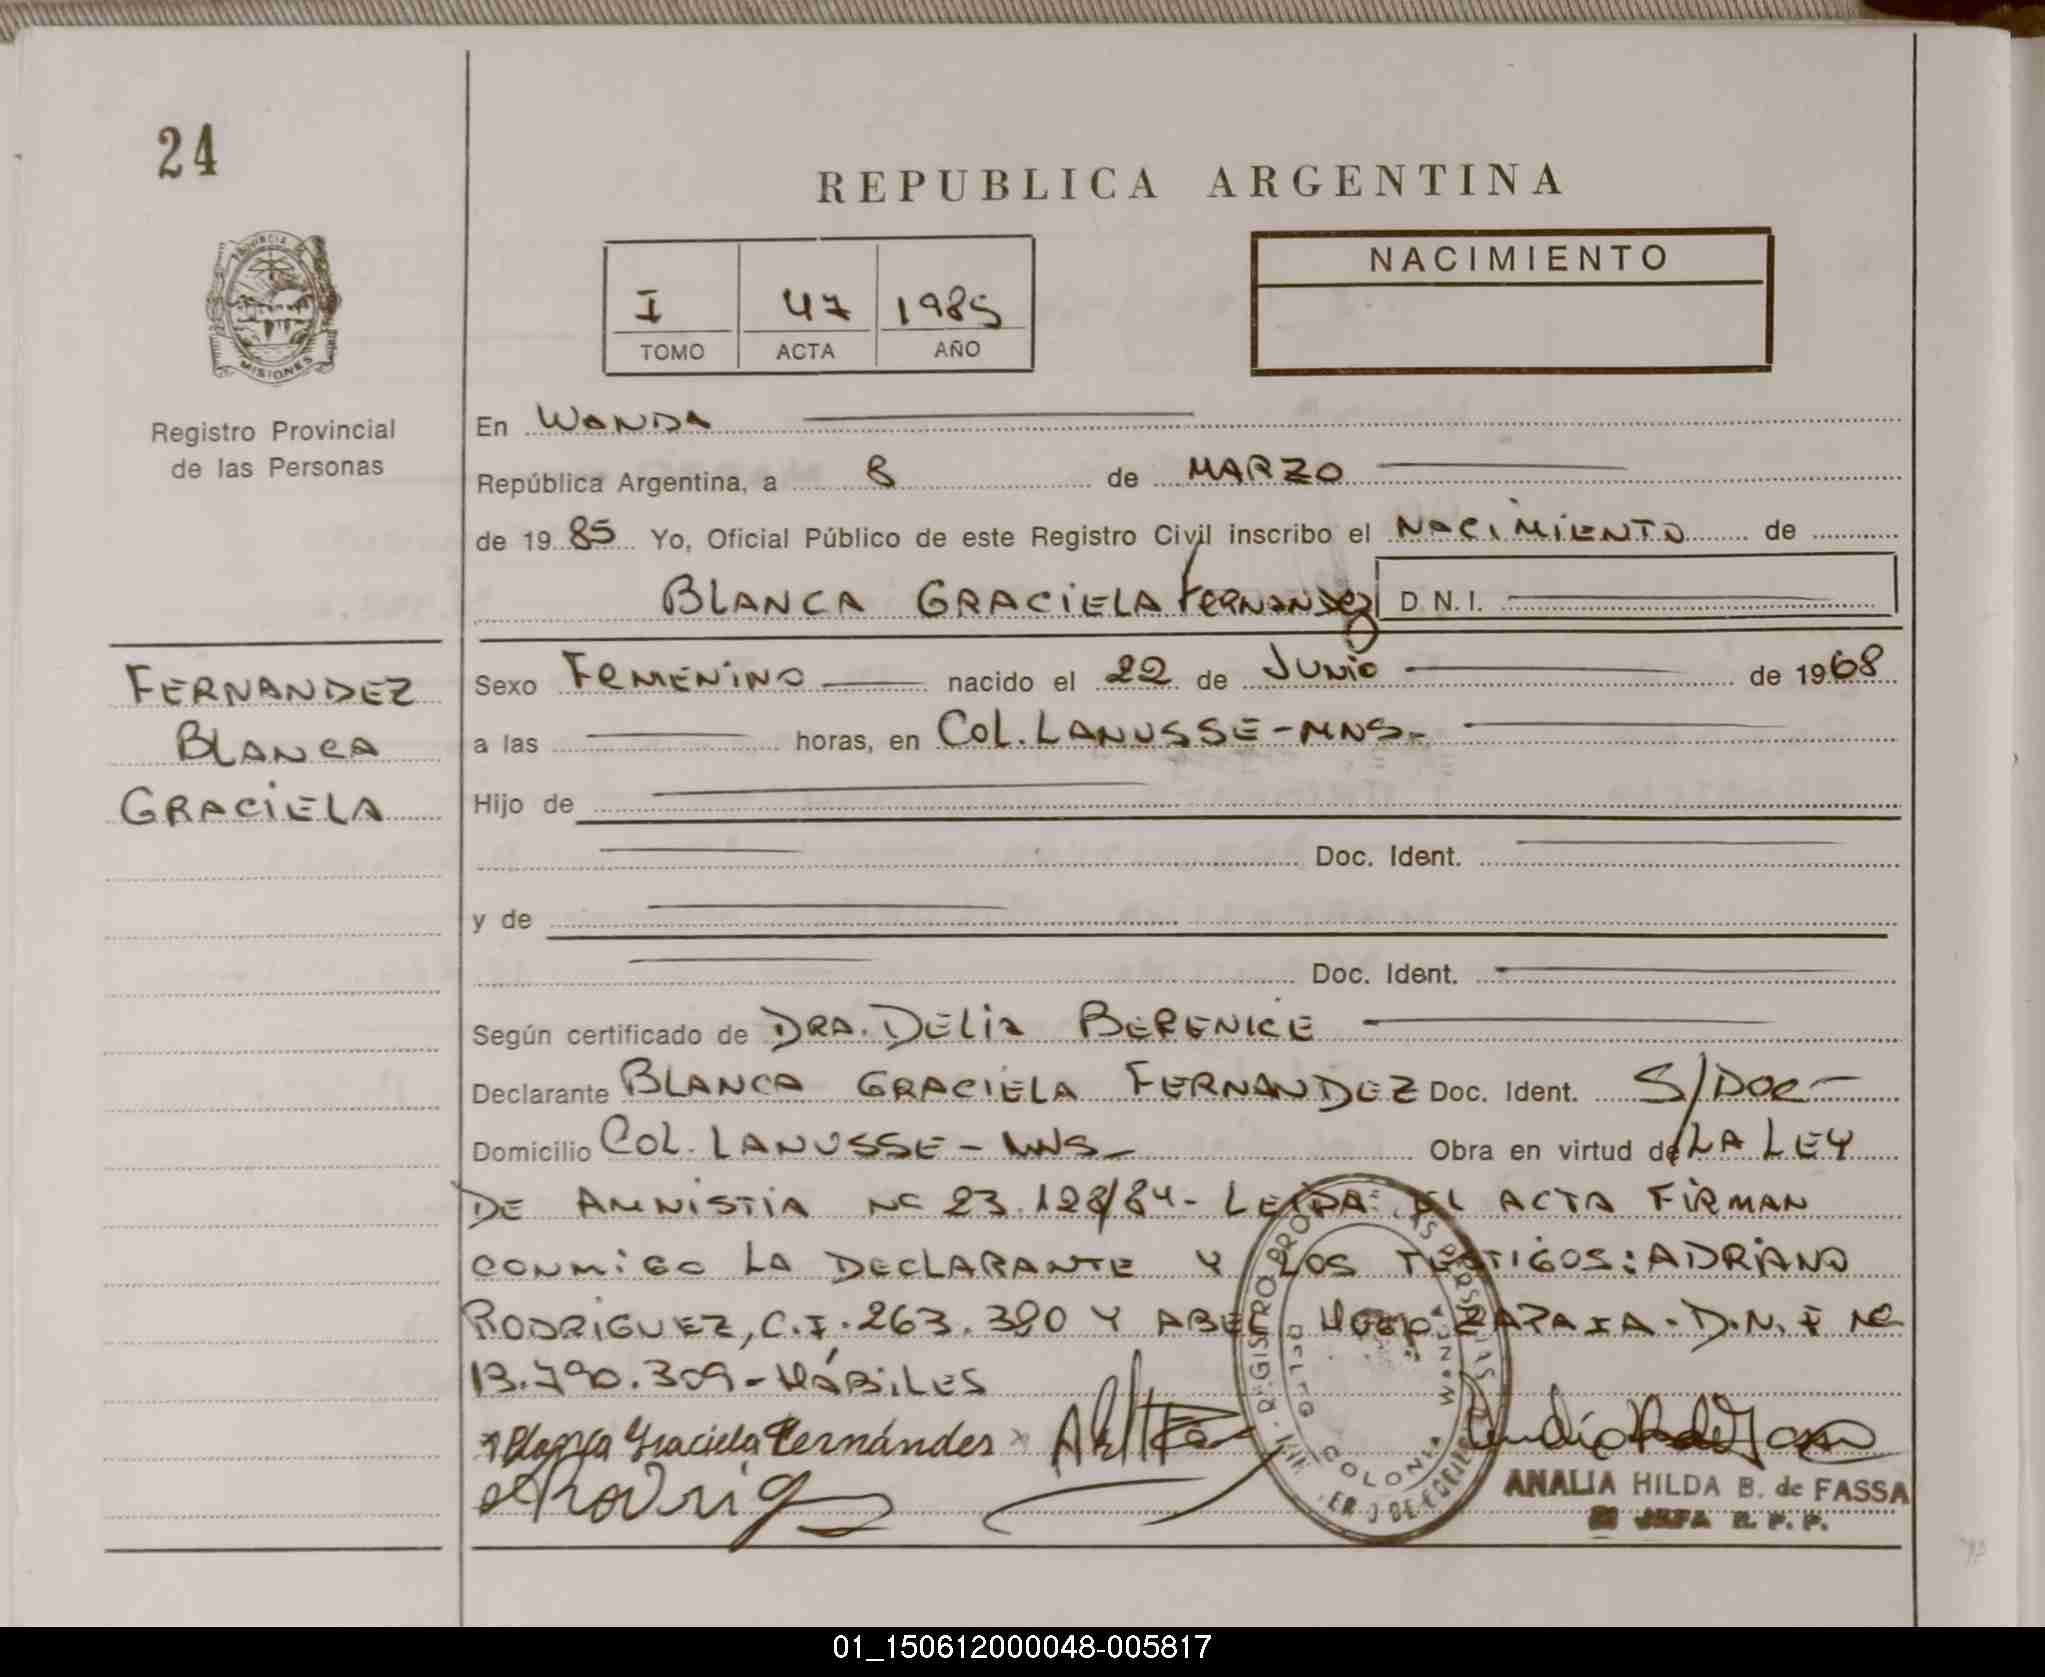 24
REPUBLICA ARGENTINA
PROVINCIA DE
MISIONES
I 47 1985
TOMO ACTA AÑO
NACIMIENTO
Registro Provincial
de las Personas
En WANDA
República Argentina, a 8 de MARZO
de 1985 Yo, Oficial Público de este Registro Civil inscribo el NACIMIENTO de
BLANCA GRACIELA FERNANDEZ D N. I.
FERNANDEZ
BLANCA
GRACIELA
Sexo FEMENINO nacido el 22 de JUNIO de 1968
a las horas, en COL. LANUSSE - MNS.-
Hijo de
Doc. Ident.
y de
Doc. Ident.
Según certificado de DRA. DELIA BERENICE
Declarante BLANCA GRACIELA FERNANDEZ Doc. Ident. S/DOC-
Domicilio COL. LANUSSE - MNS- Obra en virtud de LA LEY
DE AMNISTIA Nº 23.128/84- LEIDA EL ACTA FIRMAN
CONMIGO LA DECLARANTE Y LOS TESTIGOS: ADRIANO
RODRIGUEZ, C.I. 263.380 Y ABEL HUGO D.N.I Nº
13.790.309 - HÁBILES
Blanca Graciela Fernándes
ANALIA HILDA B. de FASSA
JEFA R. P. P.
01_150612000048-005817